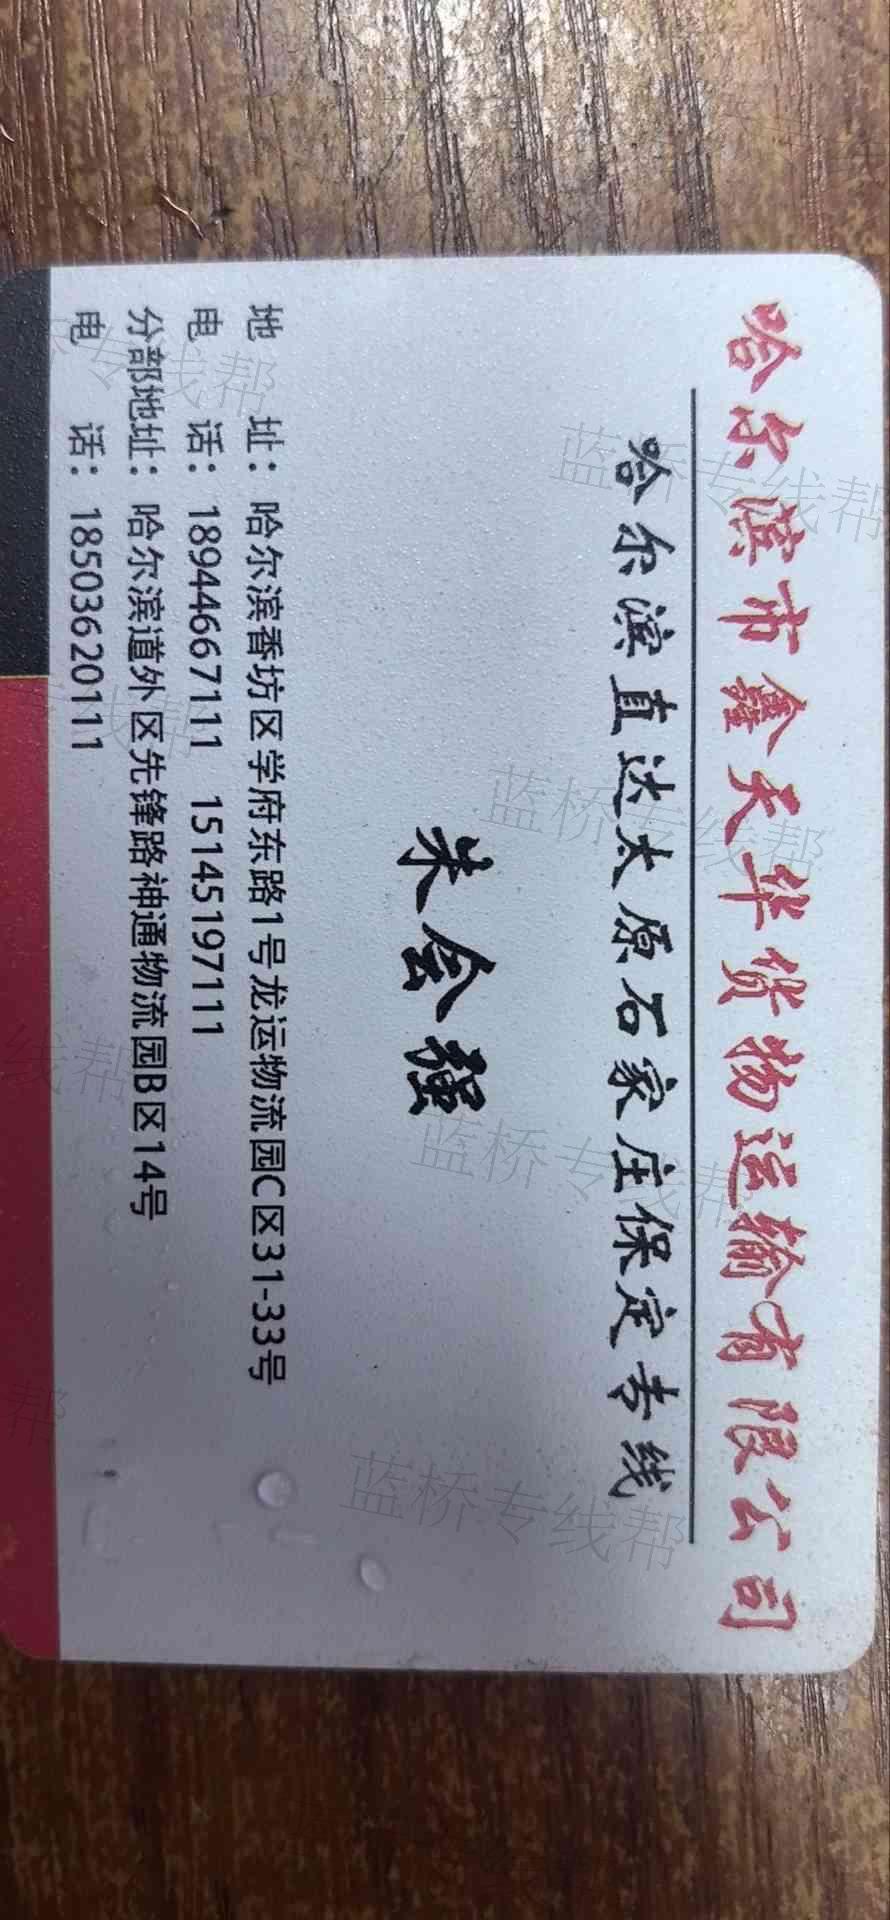 哈尔滨市鑫天华货物运输有限公司
哈尔滨直达太原石家庄保定专线
朱会强
地 址：哈尔滨香坊区学府东路1号龙运物流园C区31-33号
电 话：18944667111 15145197111
分部地址：哈尔滨道外区先锋路神通物流园B区14号
电 话：18503620111
蓝桥专线帮
蓝桥专线帮
蓝桥专线帮
蓝桥专线帮
桥专线帮
专线帮
线帮
帮